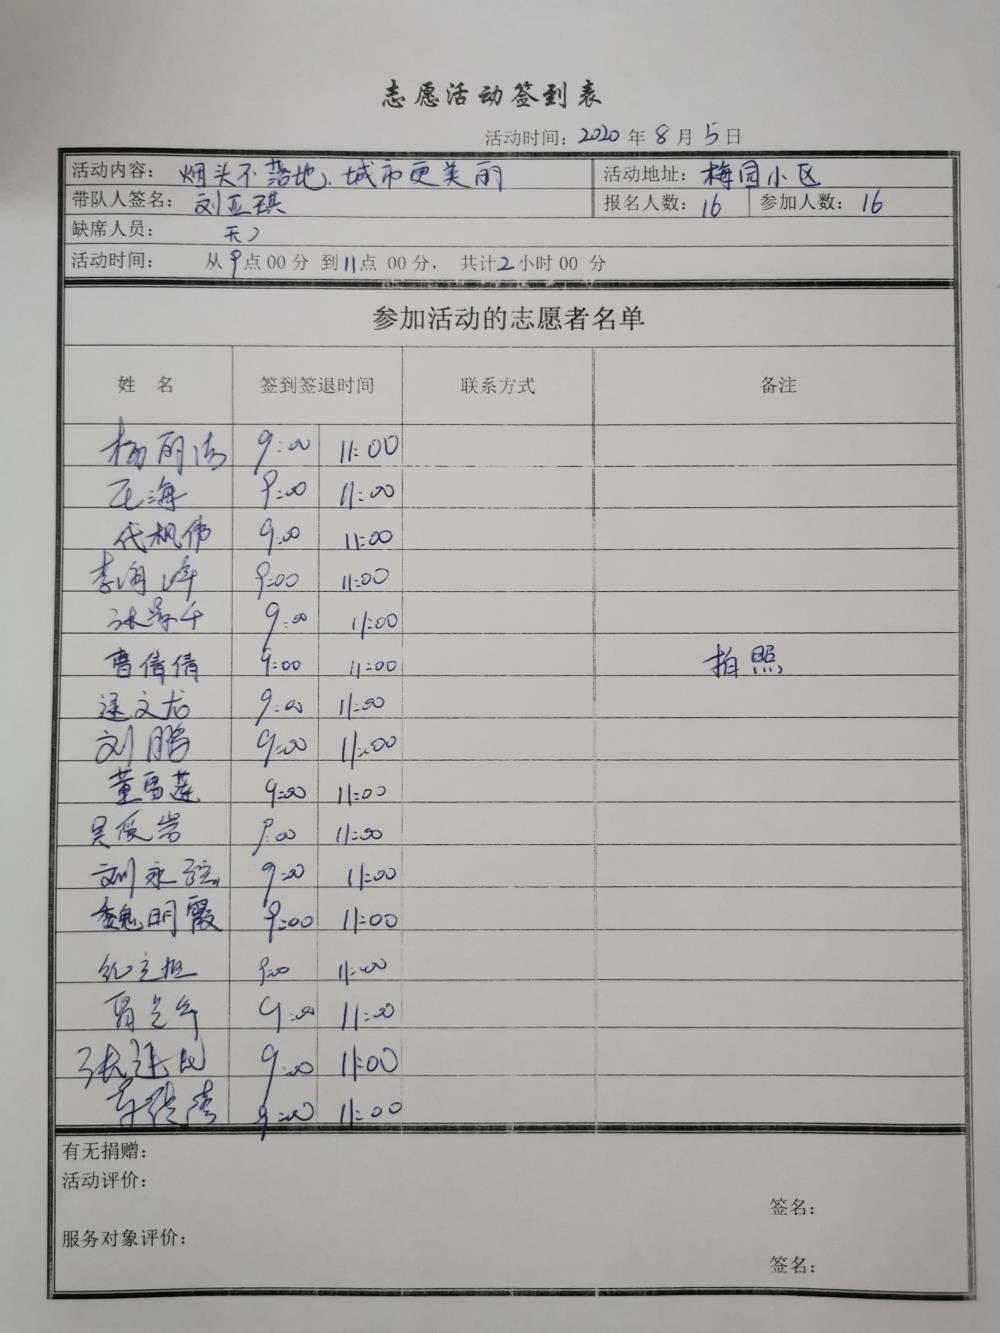 志愿活动签到表
活动时间: 2020 年 8 月 5 日
活动内容: 烟头不落地、城市更美丽 活动地址: 梅园小区
带队人签名: 刘亚琪 报名人数: 16 参加人数: 16
缺席人员:
活动时间: 从 9 点 00 分 到 11 点 00 分, 共计 2 小时 00 分
参加活动的志愿者名单
姓 名 签到签退时间 联系方式 备注
杨丽 9:00 11:00
海 9:00 11:00
代枫伟 9:00 11:00
李海峰 9:00 11:00
张 9:00 11:00
曹倩倩 9:00 11:00 拍照
逯文龙 9:00 11:00
刘鹏 9:00 11:00
董雪莲 9:00 11:00
吴俊岩 9:00 11:00
刘永强 9:00 11:00
魏明霞 9:00 11:00
纪 9:00 11:00
9:00 11:00
张 9:00 11:00
9:00 11:00
有无捐赠:
活动评价:
签名:
服务对象评价:
签名: